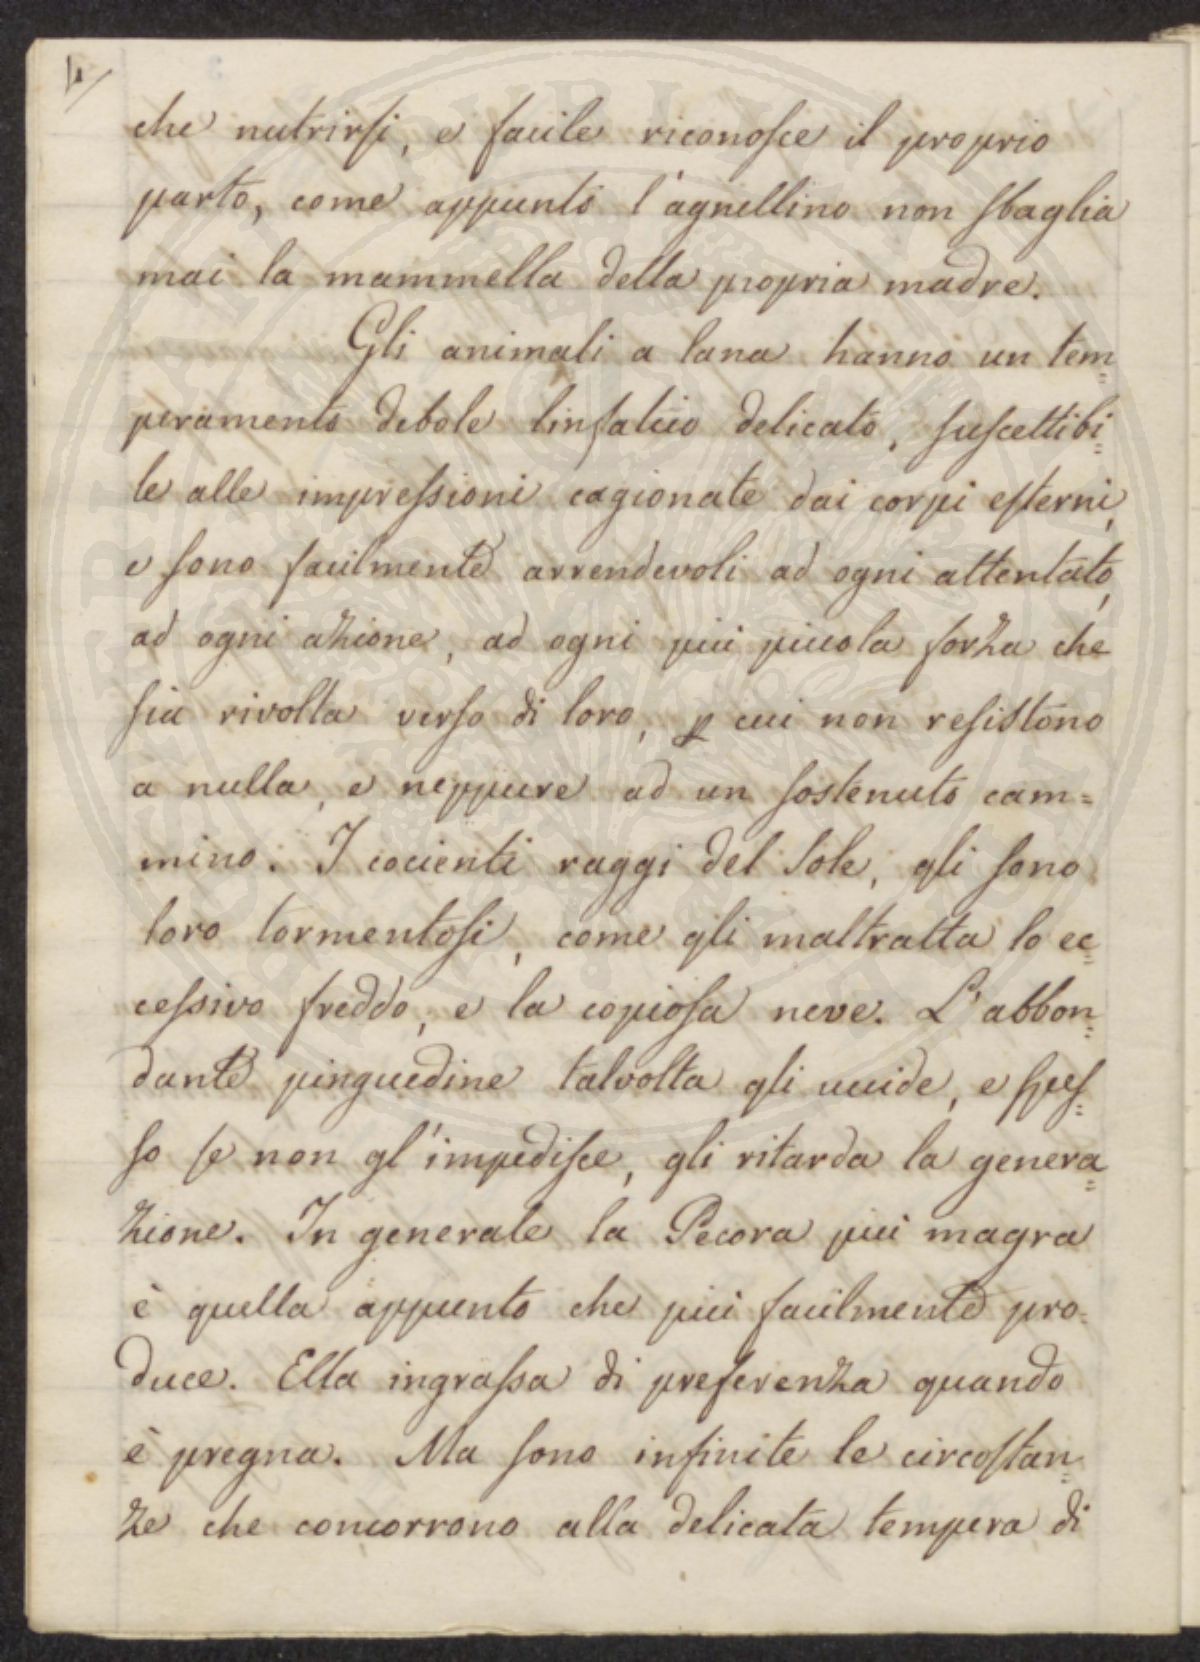 4/
che nutrirsi, e facile riconosce il proprio
parto, come appunto l'agnellino non sbaglia
mai la mammella della propria madre.
Gli animali a lana hanno un tem=
peramento debole linfatico delicato, suscettibi=
le alle impressioni cagionate dai corpi esterni,
e sono facilmente arrendevoli ad ogni attentato,
ad ogni azione, ad ogni più piccola forza che
sia rivolta verso di loro, p cui non resistono
a nulla, e neppure ad un sostenuto cam=
mino. I cocienti raggi del Sole, gli sono
loro tormentosi, come gli maltratta lo ec=
cessivo freddo, e la copiosa neve. L'abbon=
dante pinguedine talvolta gli uccide, e spes=
so se non gl'impedisce, gli ritarda la genera=
zione. In generale la Pecora più magra
è quella appunto che più facilmente pro=
duce. Ella ingrassa di preferenza quando
è pregna. Ma sono infinite le circostan=
ze che concorrono alla delicata tempera di